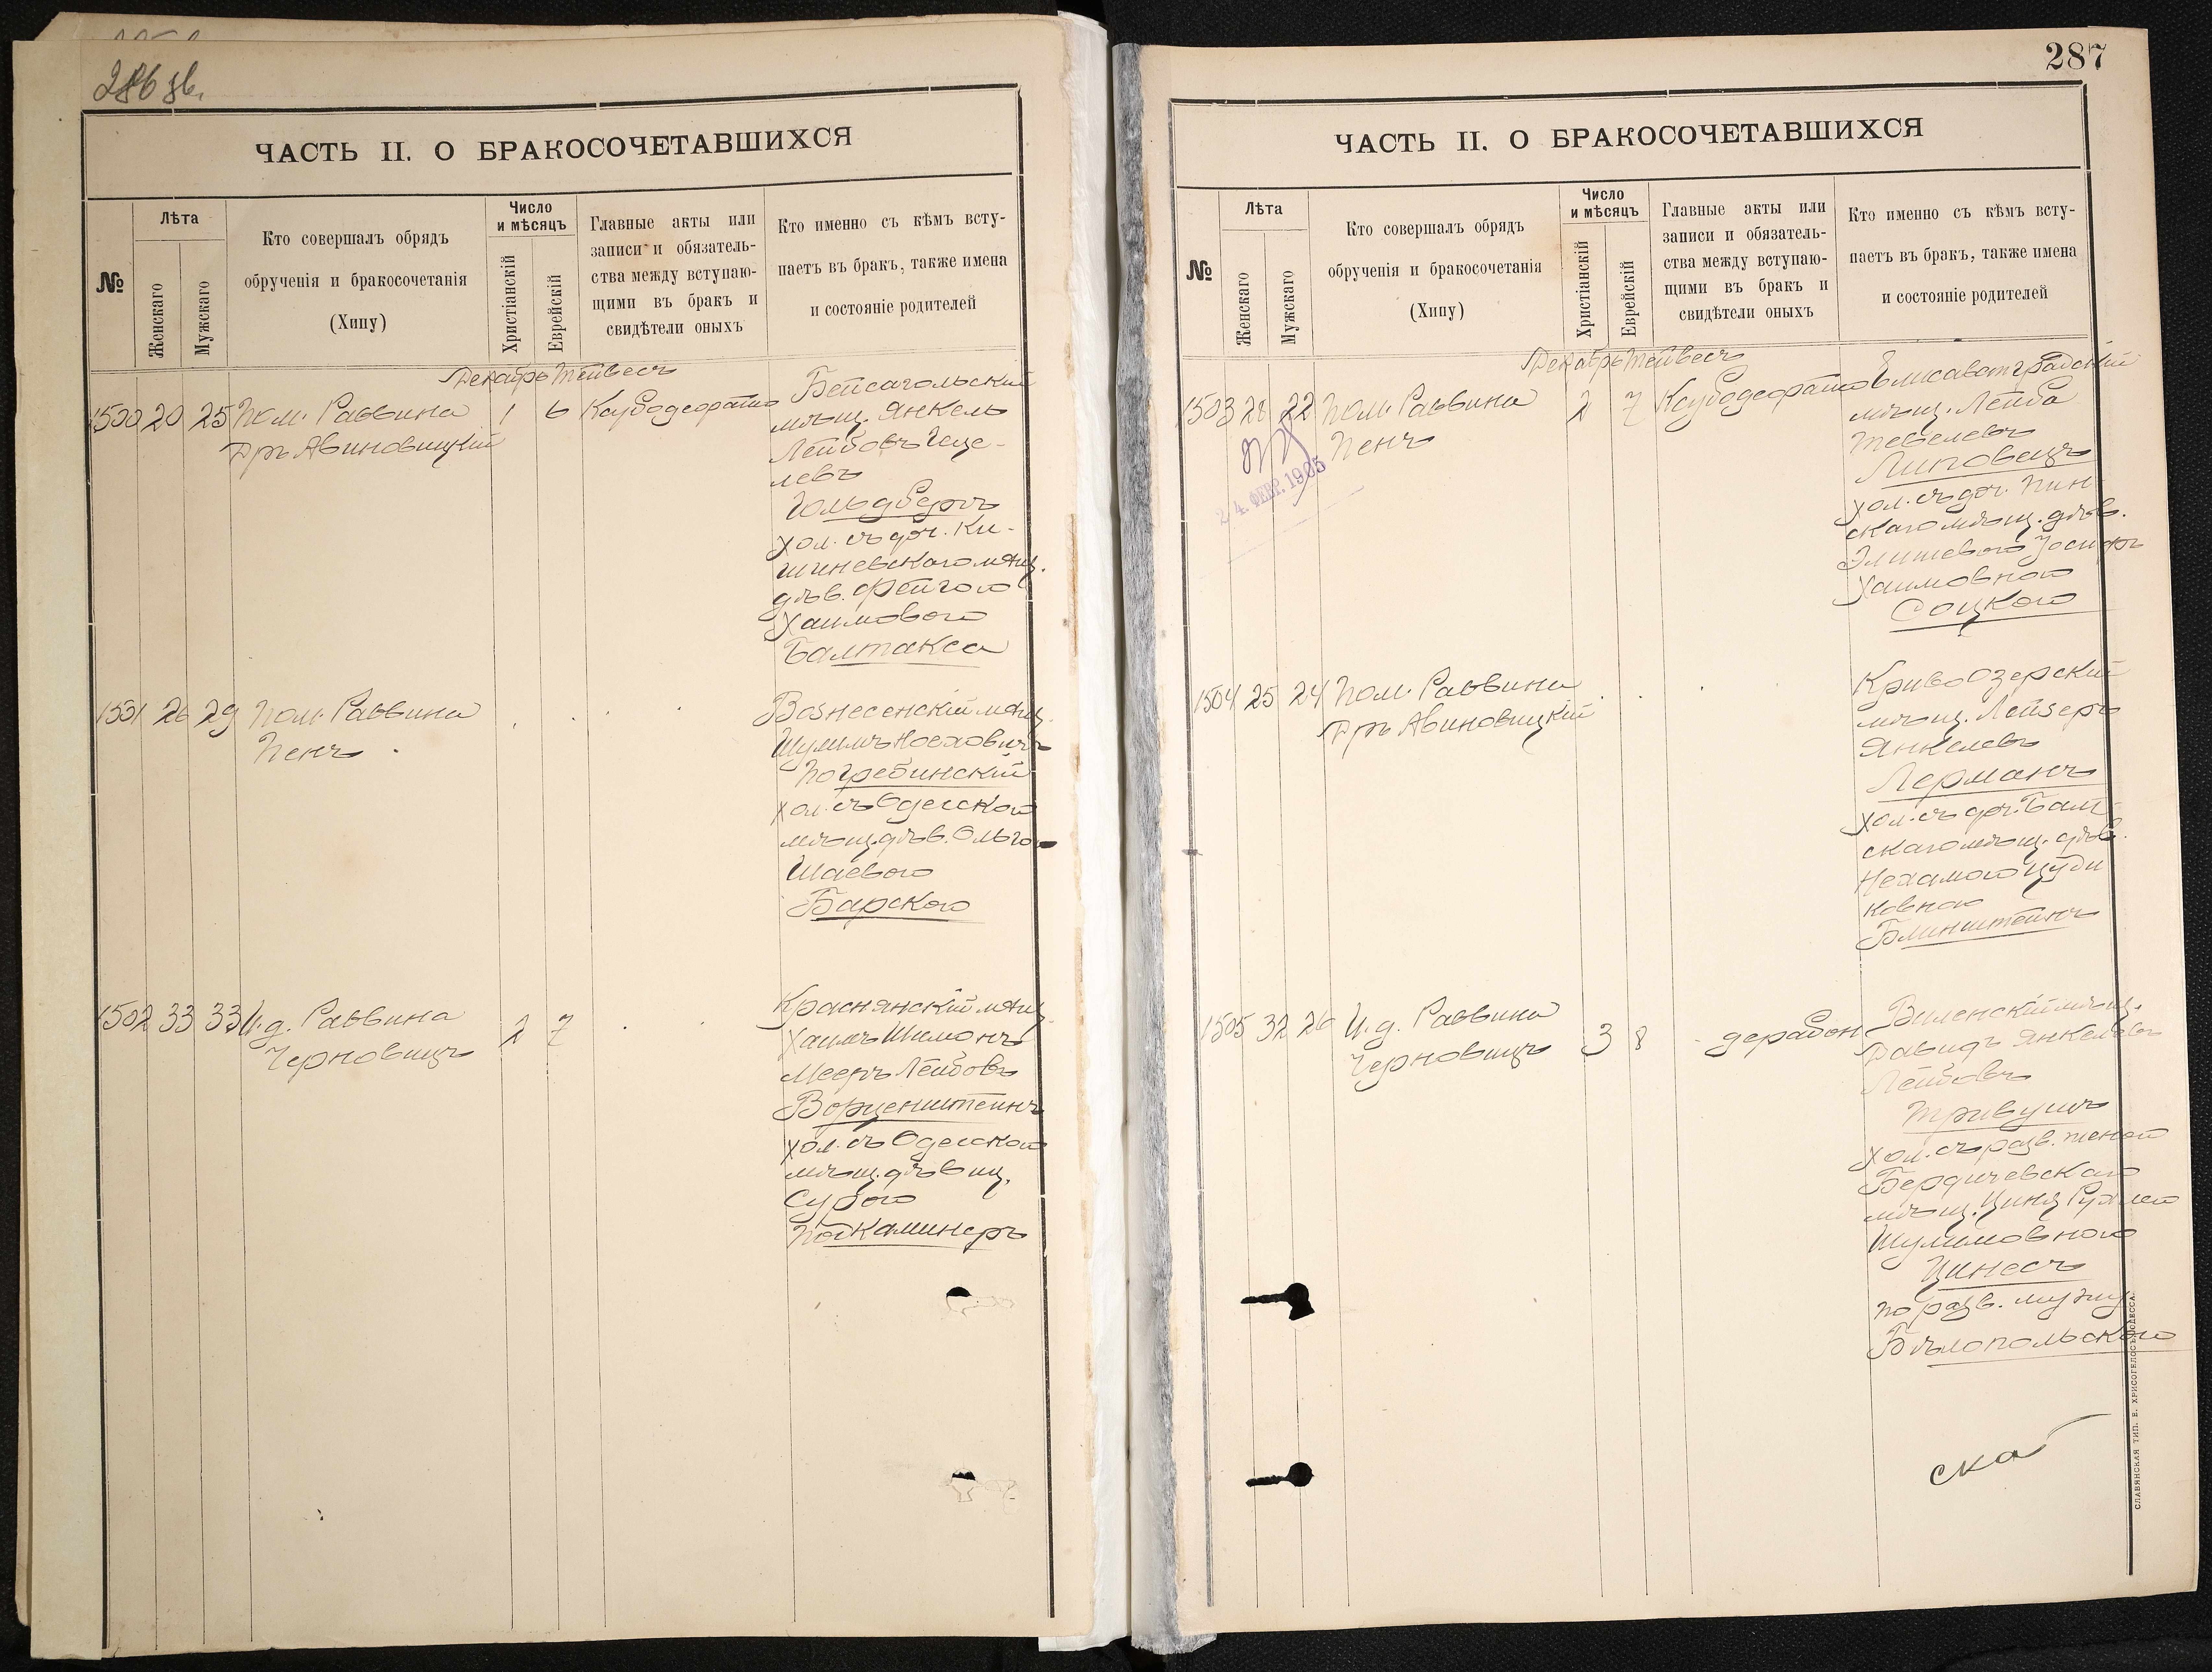 286 об.
ЧАСТЬ II. О БРАКОСОЧЕТАВШИХСЯ
№
Лѣта
Женскаго
Мужскаго
Кто совершалъ обрядъ
обрученія и бракосочетанія
(Хипу)
Число
и мѣсяцъ
Христіанскій
Еврейскій
Главные акты или
записи и обязатель-
ства между вступаю-
щими въ бракъ и
свидѣтели оныхъ
Кто именно съ кѣмъ всту-
паетъ въ бракъ, также имена
и состояніе родителей
Декабрь Тейвесъ
1500 20 25 Пом. Раввина 1 6
Дръ Авиновицкій
Бейсагольскій
мѣщ. Янкель
Лейбовъ Геце-
левъ
Гольдбергъ
хол. съ доч. Ки-
шиневскаго мѣщ.
дѣв. Фейгою
Хаимовою
Балтакса
1501 26 29 Пом. Раввина
Пенъ
Вознесенскій мѣщ.
Шулимъ Ноеховичъ
Погребинскій
хол. съ Одесской
мѣщ. дѣв. Ольгою
Шаевою
Барскою
1502 33 33 И. д. Раввина 2 7
Черновицъ
Краснянскій мѣщ.
Хаимъ Шимонъ
Мееръ Лейбовъ
Ворценштейнъ
хол. съ Одесской
мѣщ. дѣвиц.
Сурою
Подкаминеръ
287
ЧАСТЬ II. О БРАКОСОЧЕТАВШИХСЯ
№
Лѣта
Женскаго
Мужскаго
Кто совершалъ обрядъ
обрученія и бракосочетанія
(Хипу)
Число
и мѣсяцъ
Христіанскій
Еврейскій
Главные акты или
записи и обязатель-
ства между вступаю-
щими въ бракъ и
свидѣтели оныхъ
Кто именно съ кѣмъ всту-
паетъ въ бракъ, также имена
и состояніе родителей
Декабрь Тейвесъ
1503 28 22 Пом. Раввина 2 7
Пенъ
24. ФЕВР. 1905
Елисаветградскій
мѣщ. Лейба
Тевелевъ
Липовецъ
хол. съ доч. Пин-
скаго мѣщ. дѣв.
Элишевою Іосифъ
Хаимовною
Соцкою
1504 25 24 Пом. Раввина
Дръ Авиновицкій
Кривоозерскій
мѣщ. Лейзеръ
Янкелевъ
Лерманъ
хол. съ доч. Балт-
скаго мѣщ. дѣв.
Нехамою Цуди
ковною
Блинштейнъ
1505 32 26 И. д. Раввина 3 8
Черновицъ
Виленскій мѣщ.
Давидъ Янкелевъ
Лейбовъ
Тривушъ
хол. съ разв. женой
Бердичевскаго
мѣщ. Цинз Рухлею
Шулимовною
Цинесъ
по разв. мужу
Бѣлопольскою
СЛАВЯНСКАЯ ТИП. Е. ХРИСОГЕЛОСЪ, ОДЕССА.